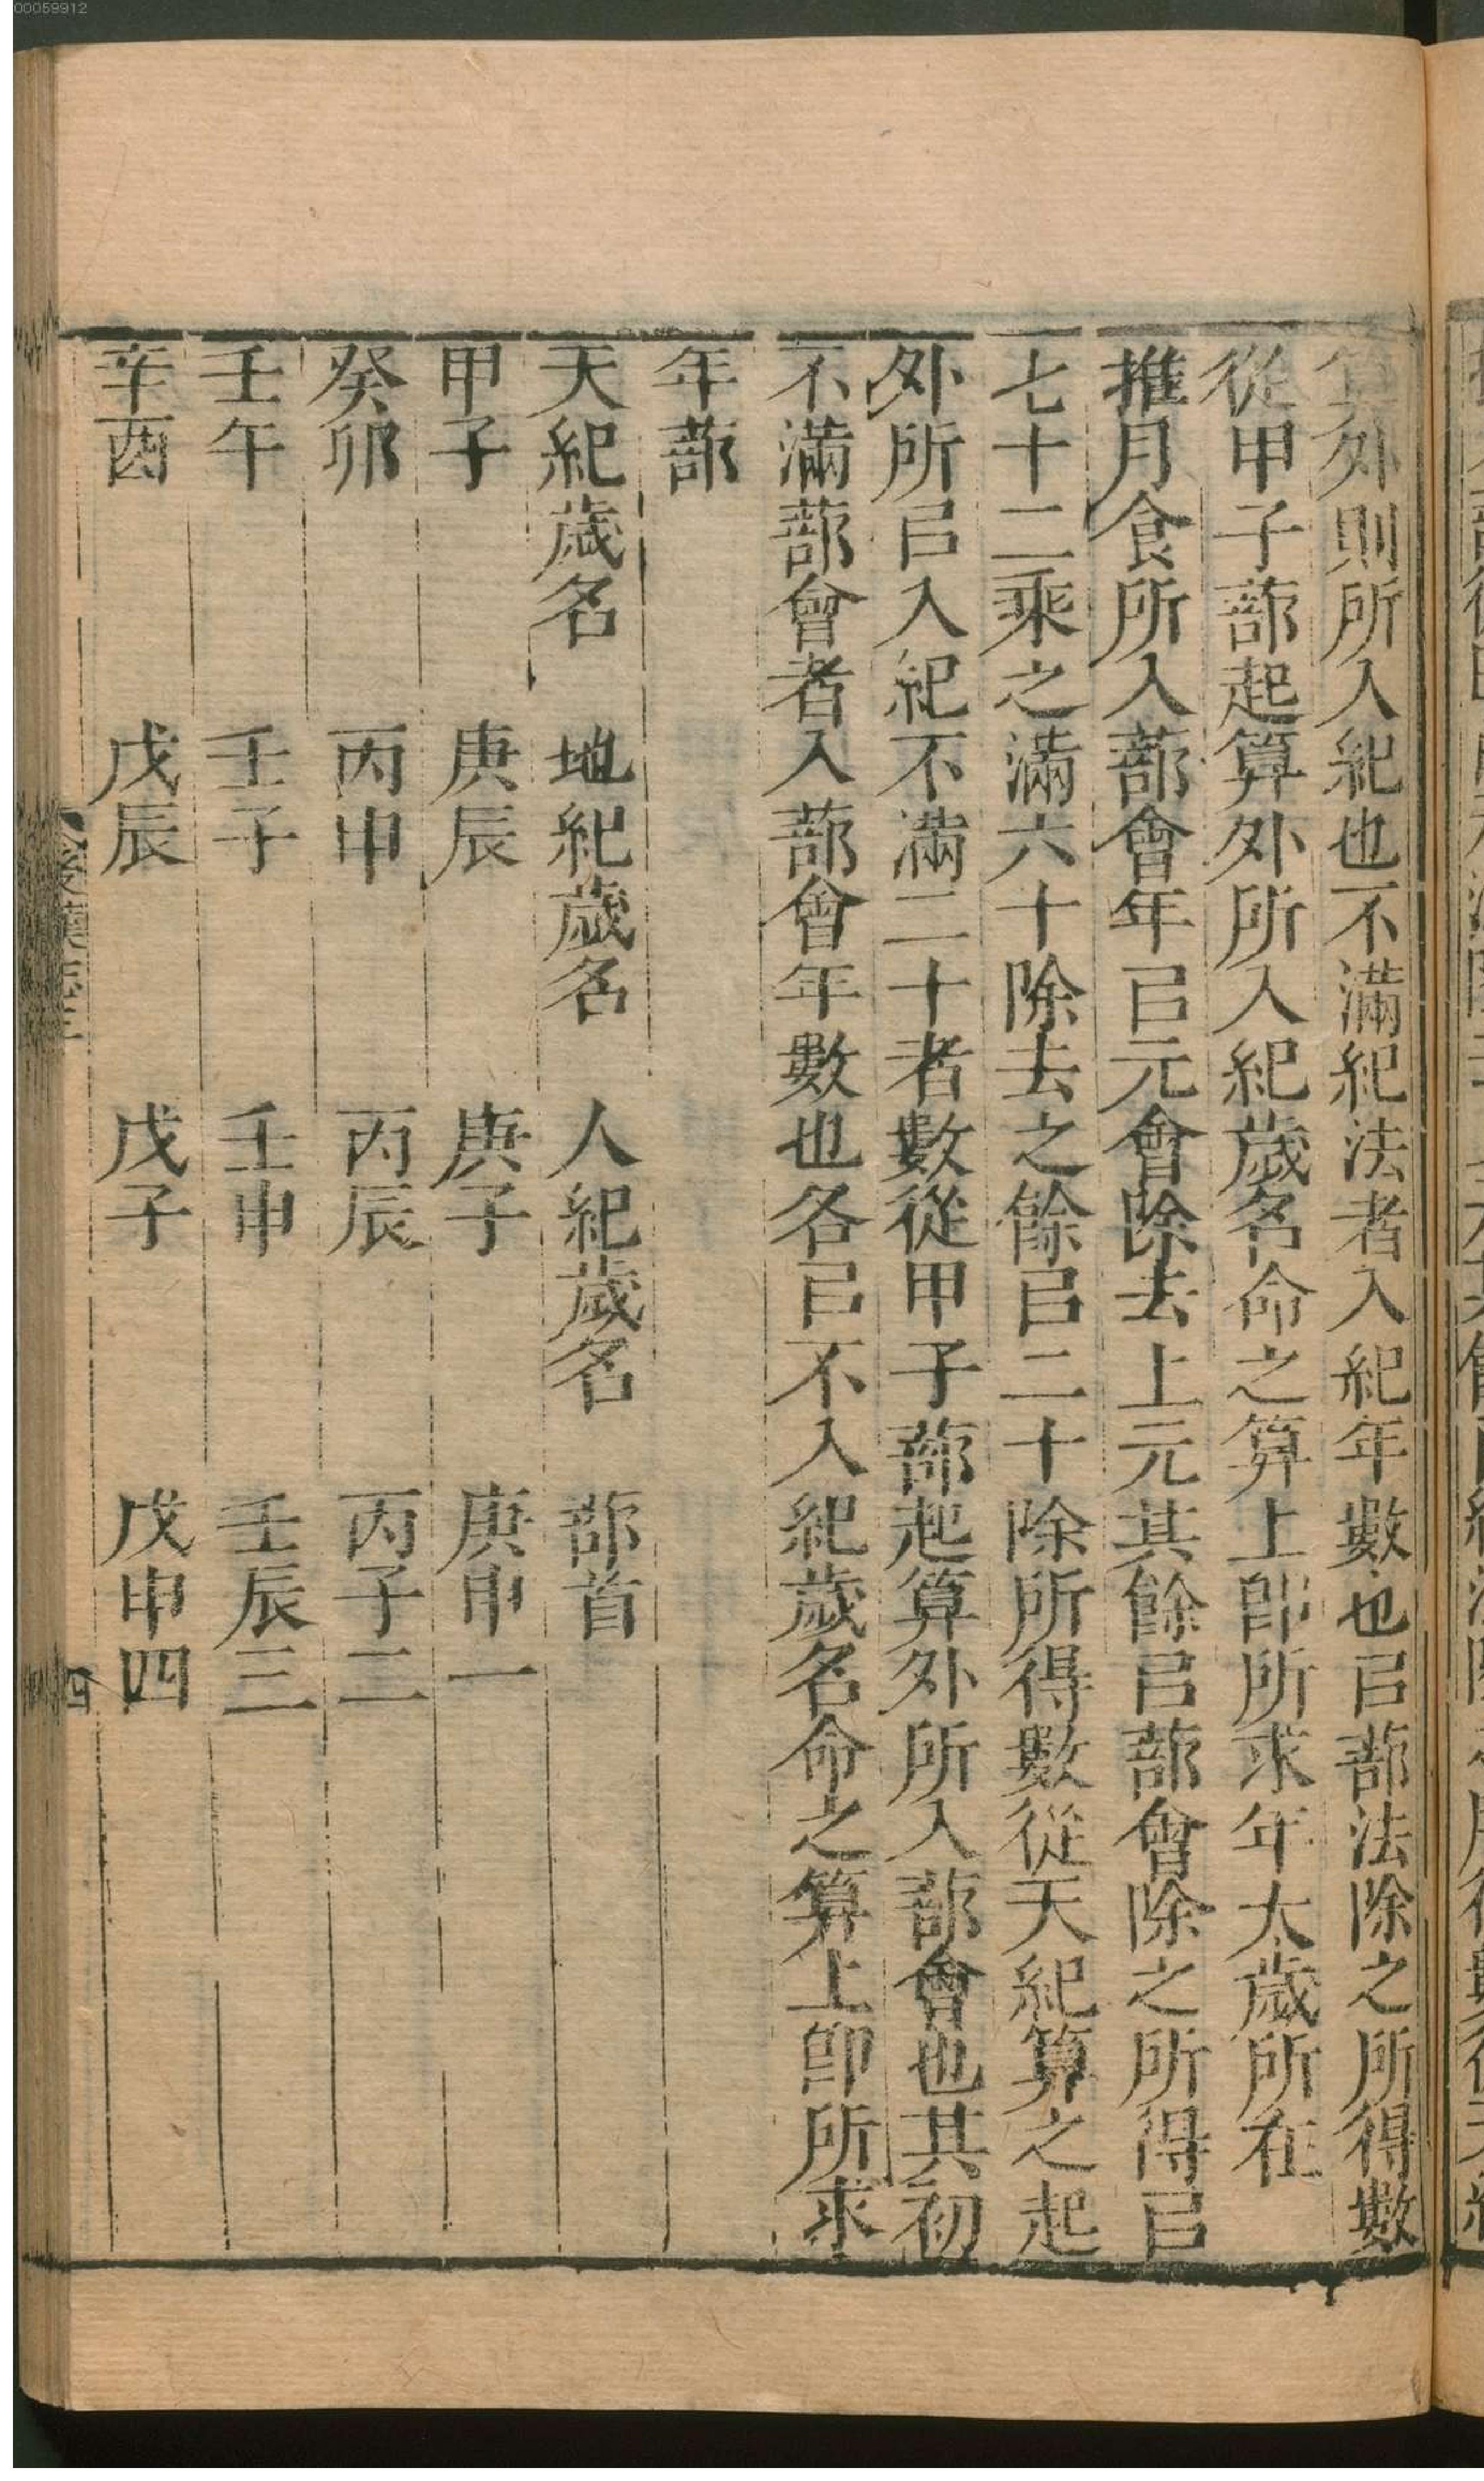 00059912
算外則所入紀也不滿紀法者入紀年數也㠯蔀法除之所得數
從甲子蔀起算外所入紀歲名命之算上卽所求年太歲所在
推月食所入蔀會年㠯元會除去上元其餘㠯蔀會除之所得㠯
七十二乘之滿六十除去之餘㠯二十除所得數從天紀算之起
外所㠯入紀不滿二十者數從甲子蔀起算外所入蔀會也其初
不滿蔀會者入蔀會年數也各㠯不入紀歲名命之算上卽所求
年蔀
天紀歲名 地紀歲名 人紀歲名 蔀首
甲子 庚辰 庚子 庚申一
癸卯 丙申 丙辰 丙子二
壬午 壬子 壬申 壬辰三
辛酉 戊辰 戊子 戊申四
四